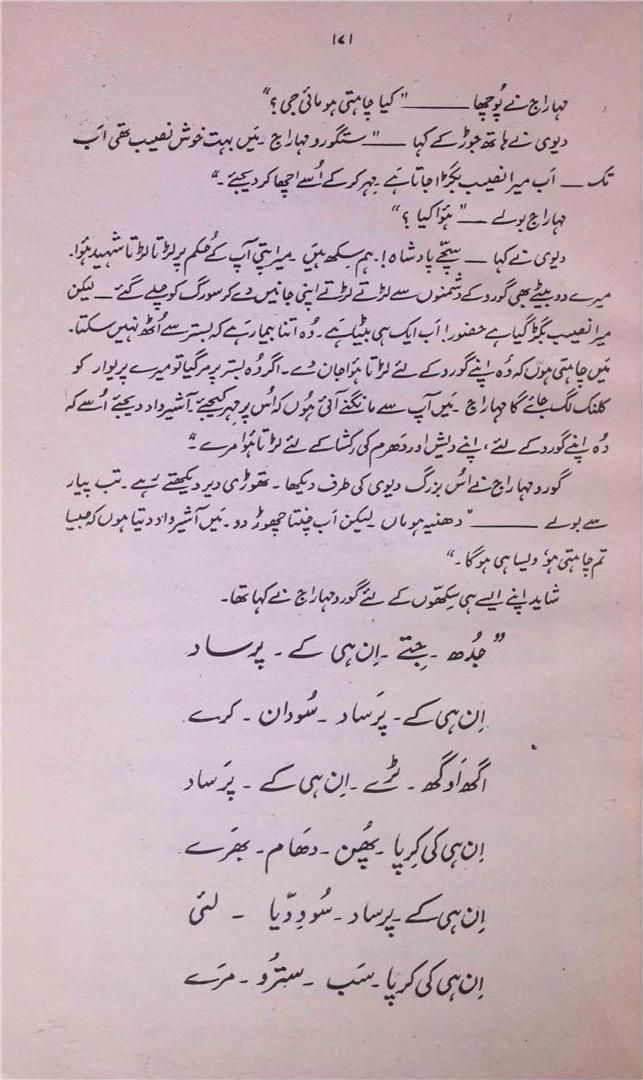 ۱۷۱
مہاراج نے پُوچھا ـــــــ "کیا چاہتی ہو مائی جی؟"
دیوی نے ہاتھ جوڑ کے کہا ــــ "ستگورو مہاراج ۔ مَیں بہت خوش نصیب تھی اَب
تک ــ اَب میرا نصیب بگڑا جاتا ہَے ۔ مِہر کر کے اُسے اچھا کر دیجئے ۔"
مہاراج بولے ــــ "ہؤا کیا ؟"
دیوی نے کہا ــــ سچّے پادشاہ! ۔ ہم سِکھ ہَیں ۔ میرا پتی آپ کے حُکم پر لڑتا لڑتا شہید ہؤا ۔
میرے دو بیٹے بھی گورو کے دُشمنوں سے لڑتے لڑتے اپنی جانیں دے کر سورگ کو چلے گئے ــ لیکن
میرا نصیب بگڑ گیا ہے حضور! اَب ایک ہی بیٹا ہے ۔ وُہ اتنا بیمار ہَے کہ بستر سے اُٹھ نہیں سکتا ۔
مَیں چاہتی ہُوں کہ وُہ اپنے گورو کے لئے لڑتا ہؤا جان دے ۔ اگر وُہ بستر پر مر گیا تو میرے پریوار کو
کلنک لگ جائے گا مہاراج ۔ مَیں آپ سے مانگنے آئی ہُوں کہ اُس پر مِہر کیجئے ۔ آشیرواد دیجئے اُسے کہ
وُہ اپنے گورو کے لئے، اپنے دیش اور دھرم کی رکشا کے لئے لڑتا ہُؤا مرے ۔"
گورو مہاراج نے اُس بزرگ دیوی کی طرف دیکھا ۔ تھوڑی دیر دیکھتے رہے ۔ تب پیار
سے بولے ــــــــ "دھنیہ ہو ماں لیکن اَب چِنتا چھوڑ دو ۔ مَیں آشیرواد دیتا ہوں کہ جیسا
تم چاہتی ہو ویسا ہی ہوگا ۔"
شاید اپنے ایسے ہی سِکھّوں کے لئے گورو مہاراج نے کہا تھا ۔
"جُدھ ۔ جِتے ۔ اِن ہی کے ۔ پرساد
اِن ہی کے ۔ پَرساد ۔ سُودان ۔ کرے
اگھ اَوگھ ۔ ٹرے ۔ اِن ہی کے ۔ پَرساد
اِن ہی کی کِرپا ۔ پھُن ۔ دھام ۔ بھَرے
اِن ہی کے ۔ پرساد ۔ سُو وِدّیا ۔ لئی
اِن ہی کی کرپا ۔ سَب ۔ سترُو ۔ مرَے